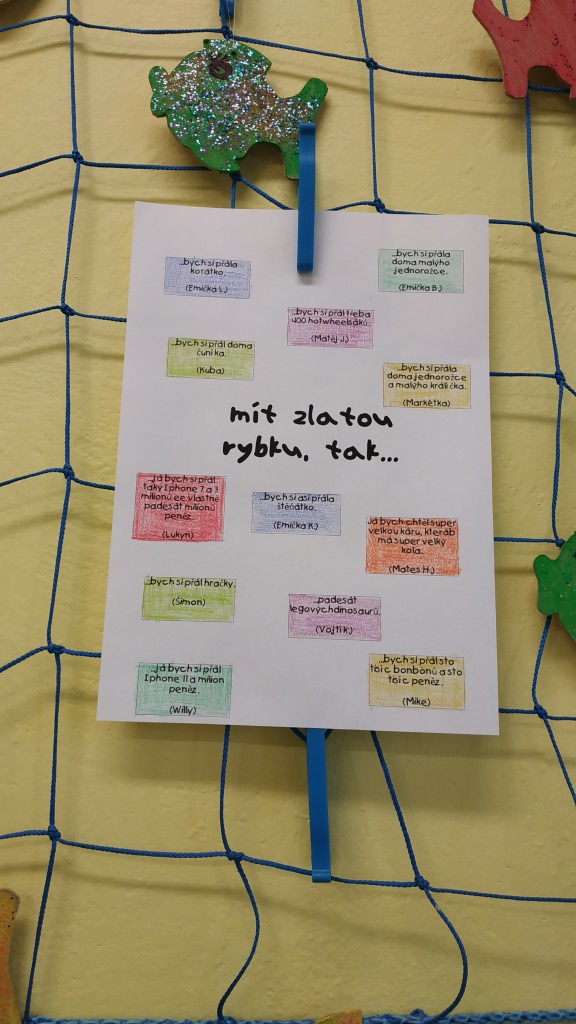 ...bych si přála
korátko.
(Emička L.)
...bych si přála
doma malýho
jednorožce.
(Emička B.)
...bych si přál třeba
400 hotwheelsáků.
(Matěj J.)
...bych si přál doma
čuníka.
(Kuba)
...bych si přála
doma jednorožce
a malýho králíčka.
(Markétka)
mít zlatou
rybku, tak...
...já bych si přál
taky Iphone 7 a 3
milionů ee vlastně
padesát milionů
peněz.
(Lukyn)
...bych si asi přála
štěňátko.
(Emička K.)
Já bych chtěl super
velkou káru, kteráb
má super velký
kola.
(Mates H.)
...bych si přál hračky.
(Šimon)
...padesát
legových dinosaurů.
(Vojtík)
...já bych si přál
Iphone 11 a milion
peněz.
(Willy)
...bych si přál sto
tisíc bonbónů a sto
tisíc peněz.
(Mike)